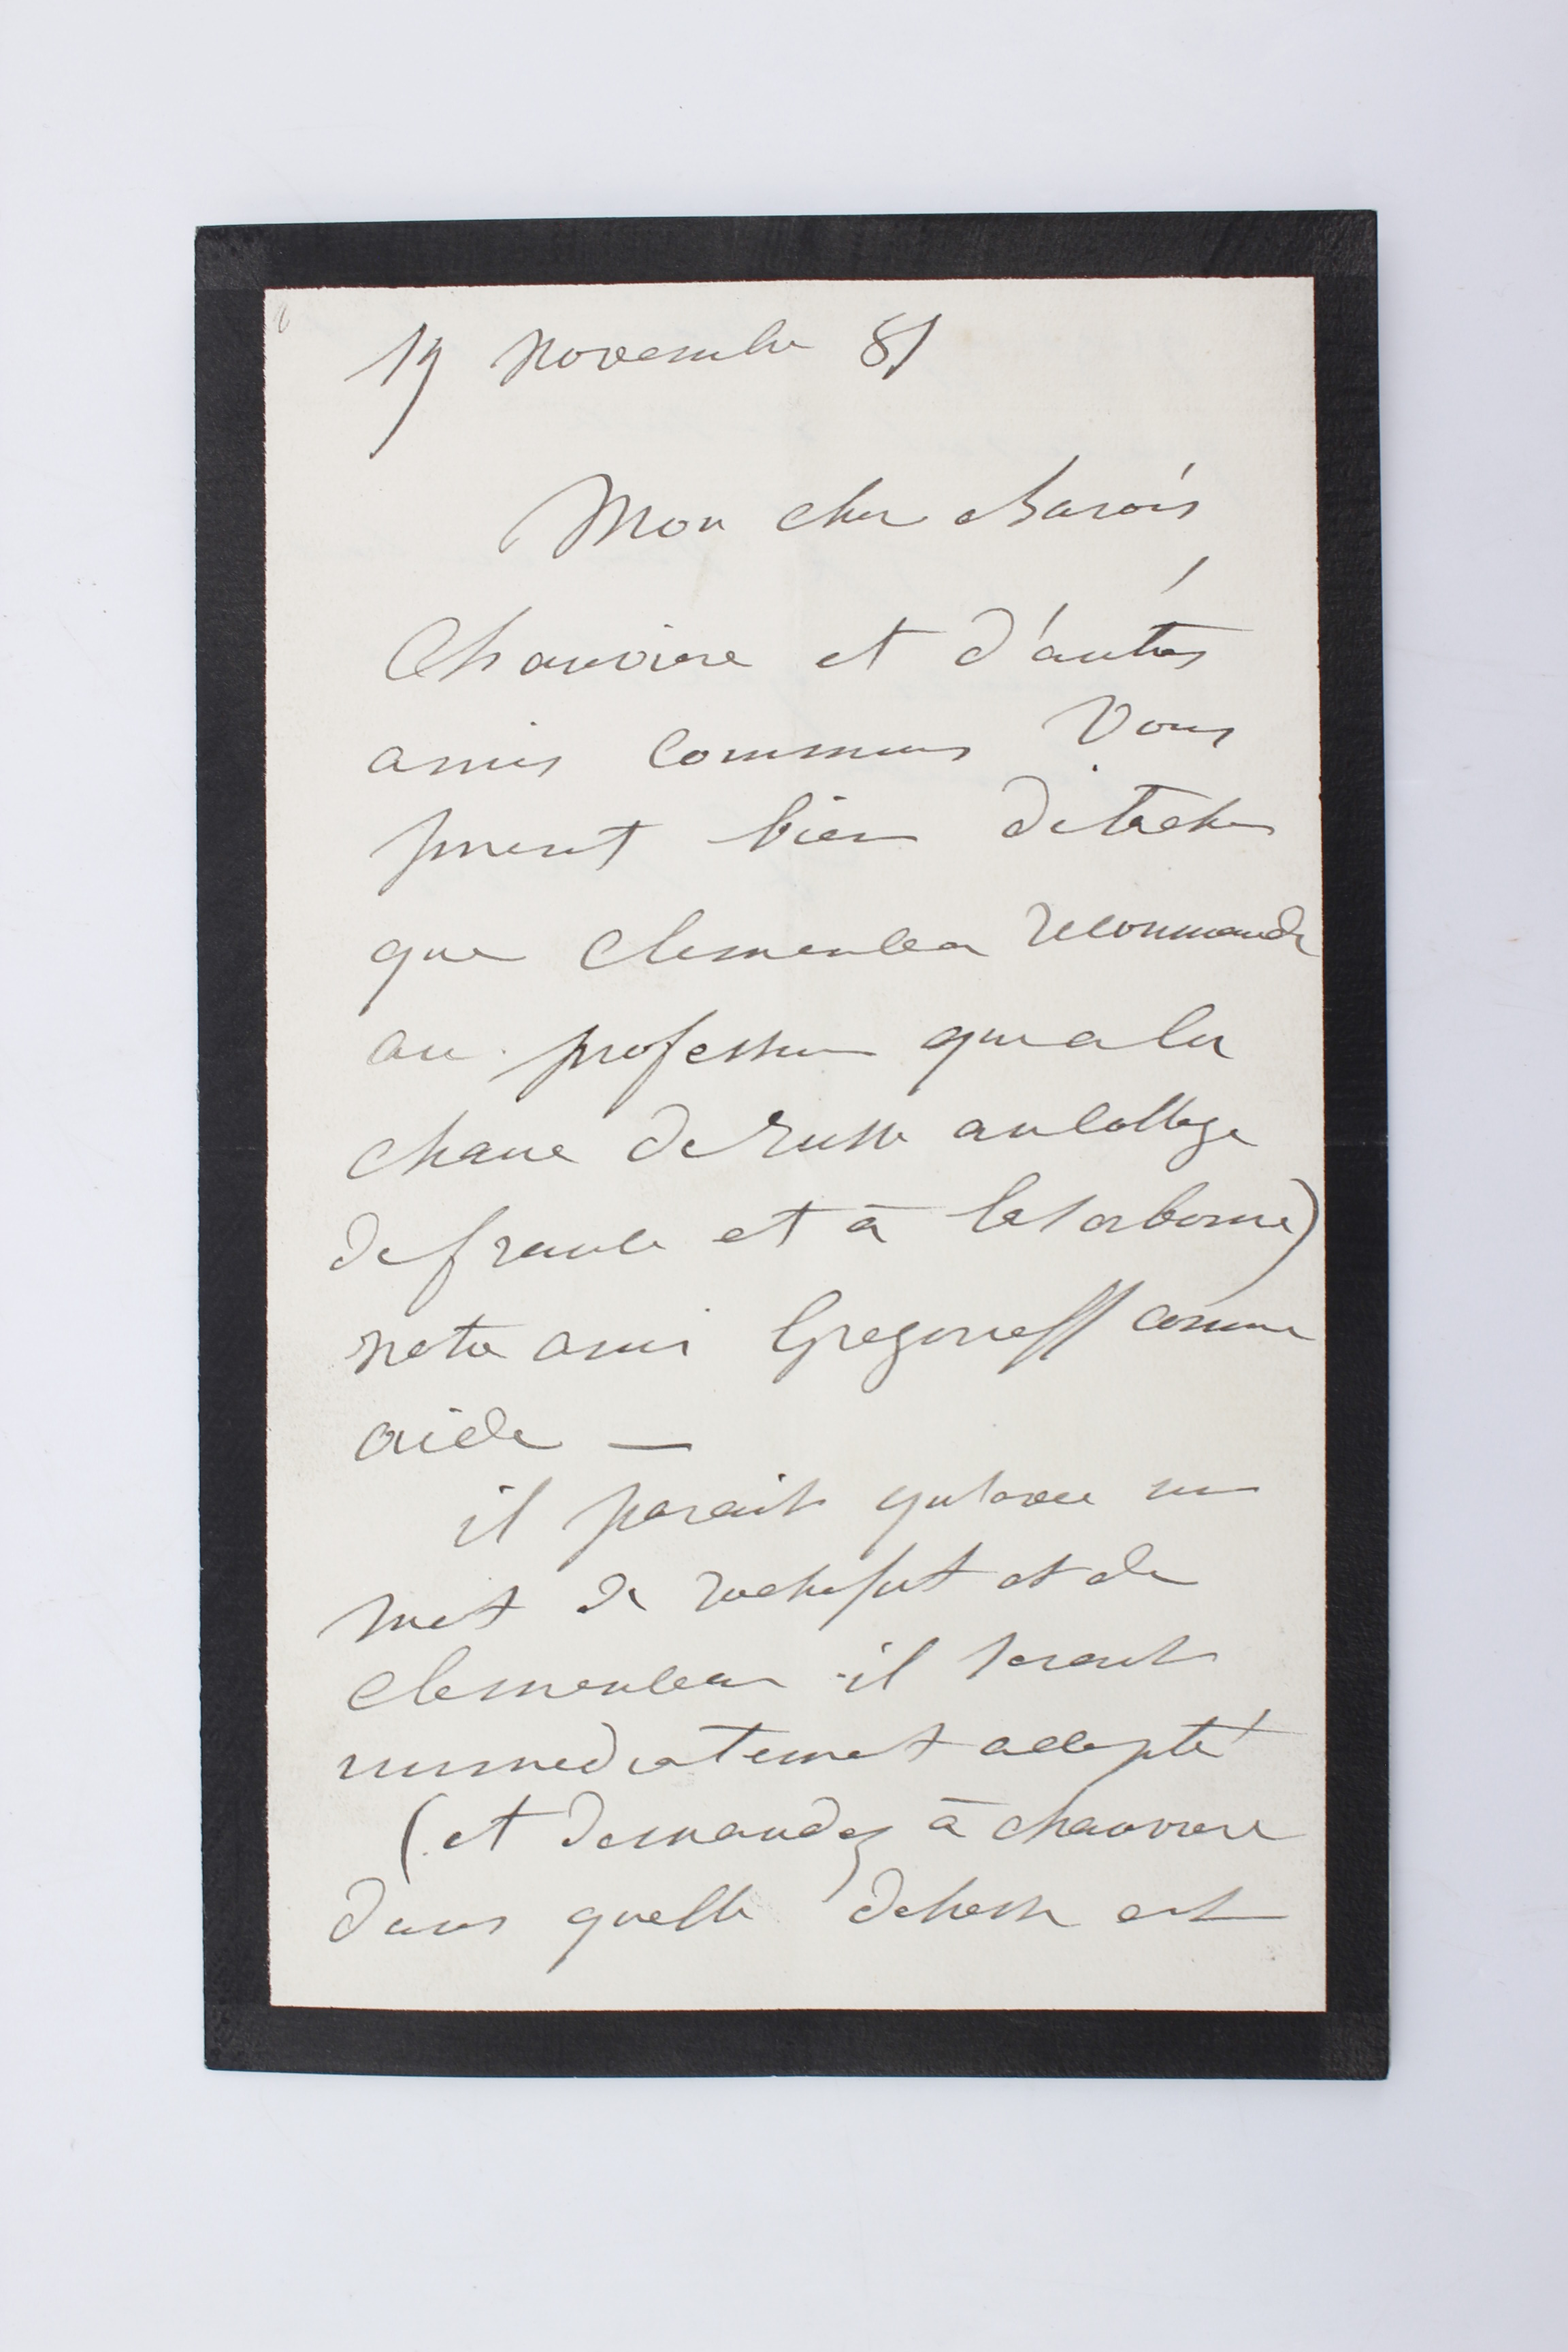 19 novembre 81
Mon cher Barois
Chauviere et d'autres
amis communs vous
prient bien de tacher
que Clemenceau recommande
au professeur qui a la
chaire de russe au College
de france et à la Sorbonne)
notre ami Gregorieff comme
aide —
il parait qu'avec un
mot de rochefort et de
Clemenceau il serait
immediatement accepté
(et demandez à chauviere
dans quelle detresse est